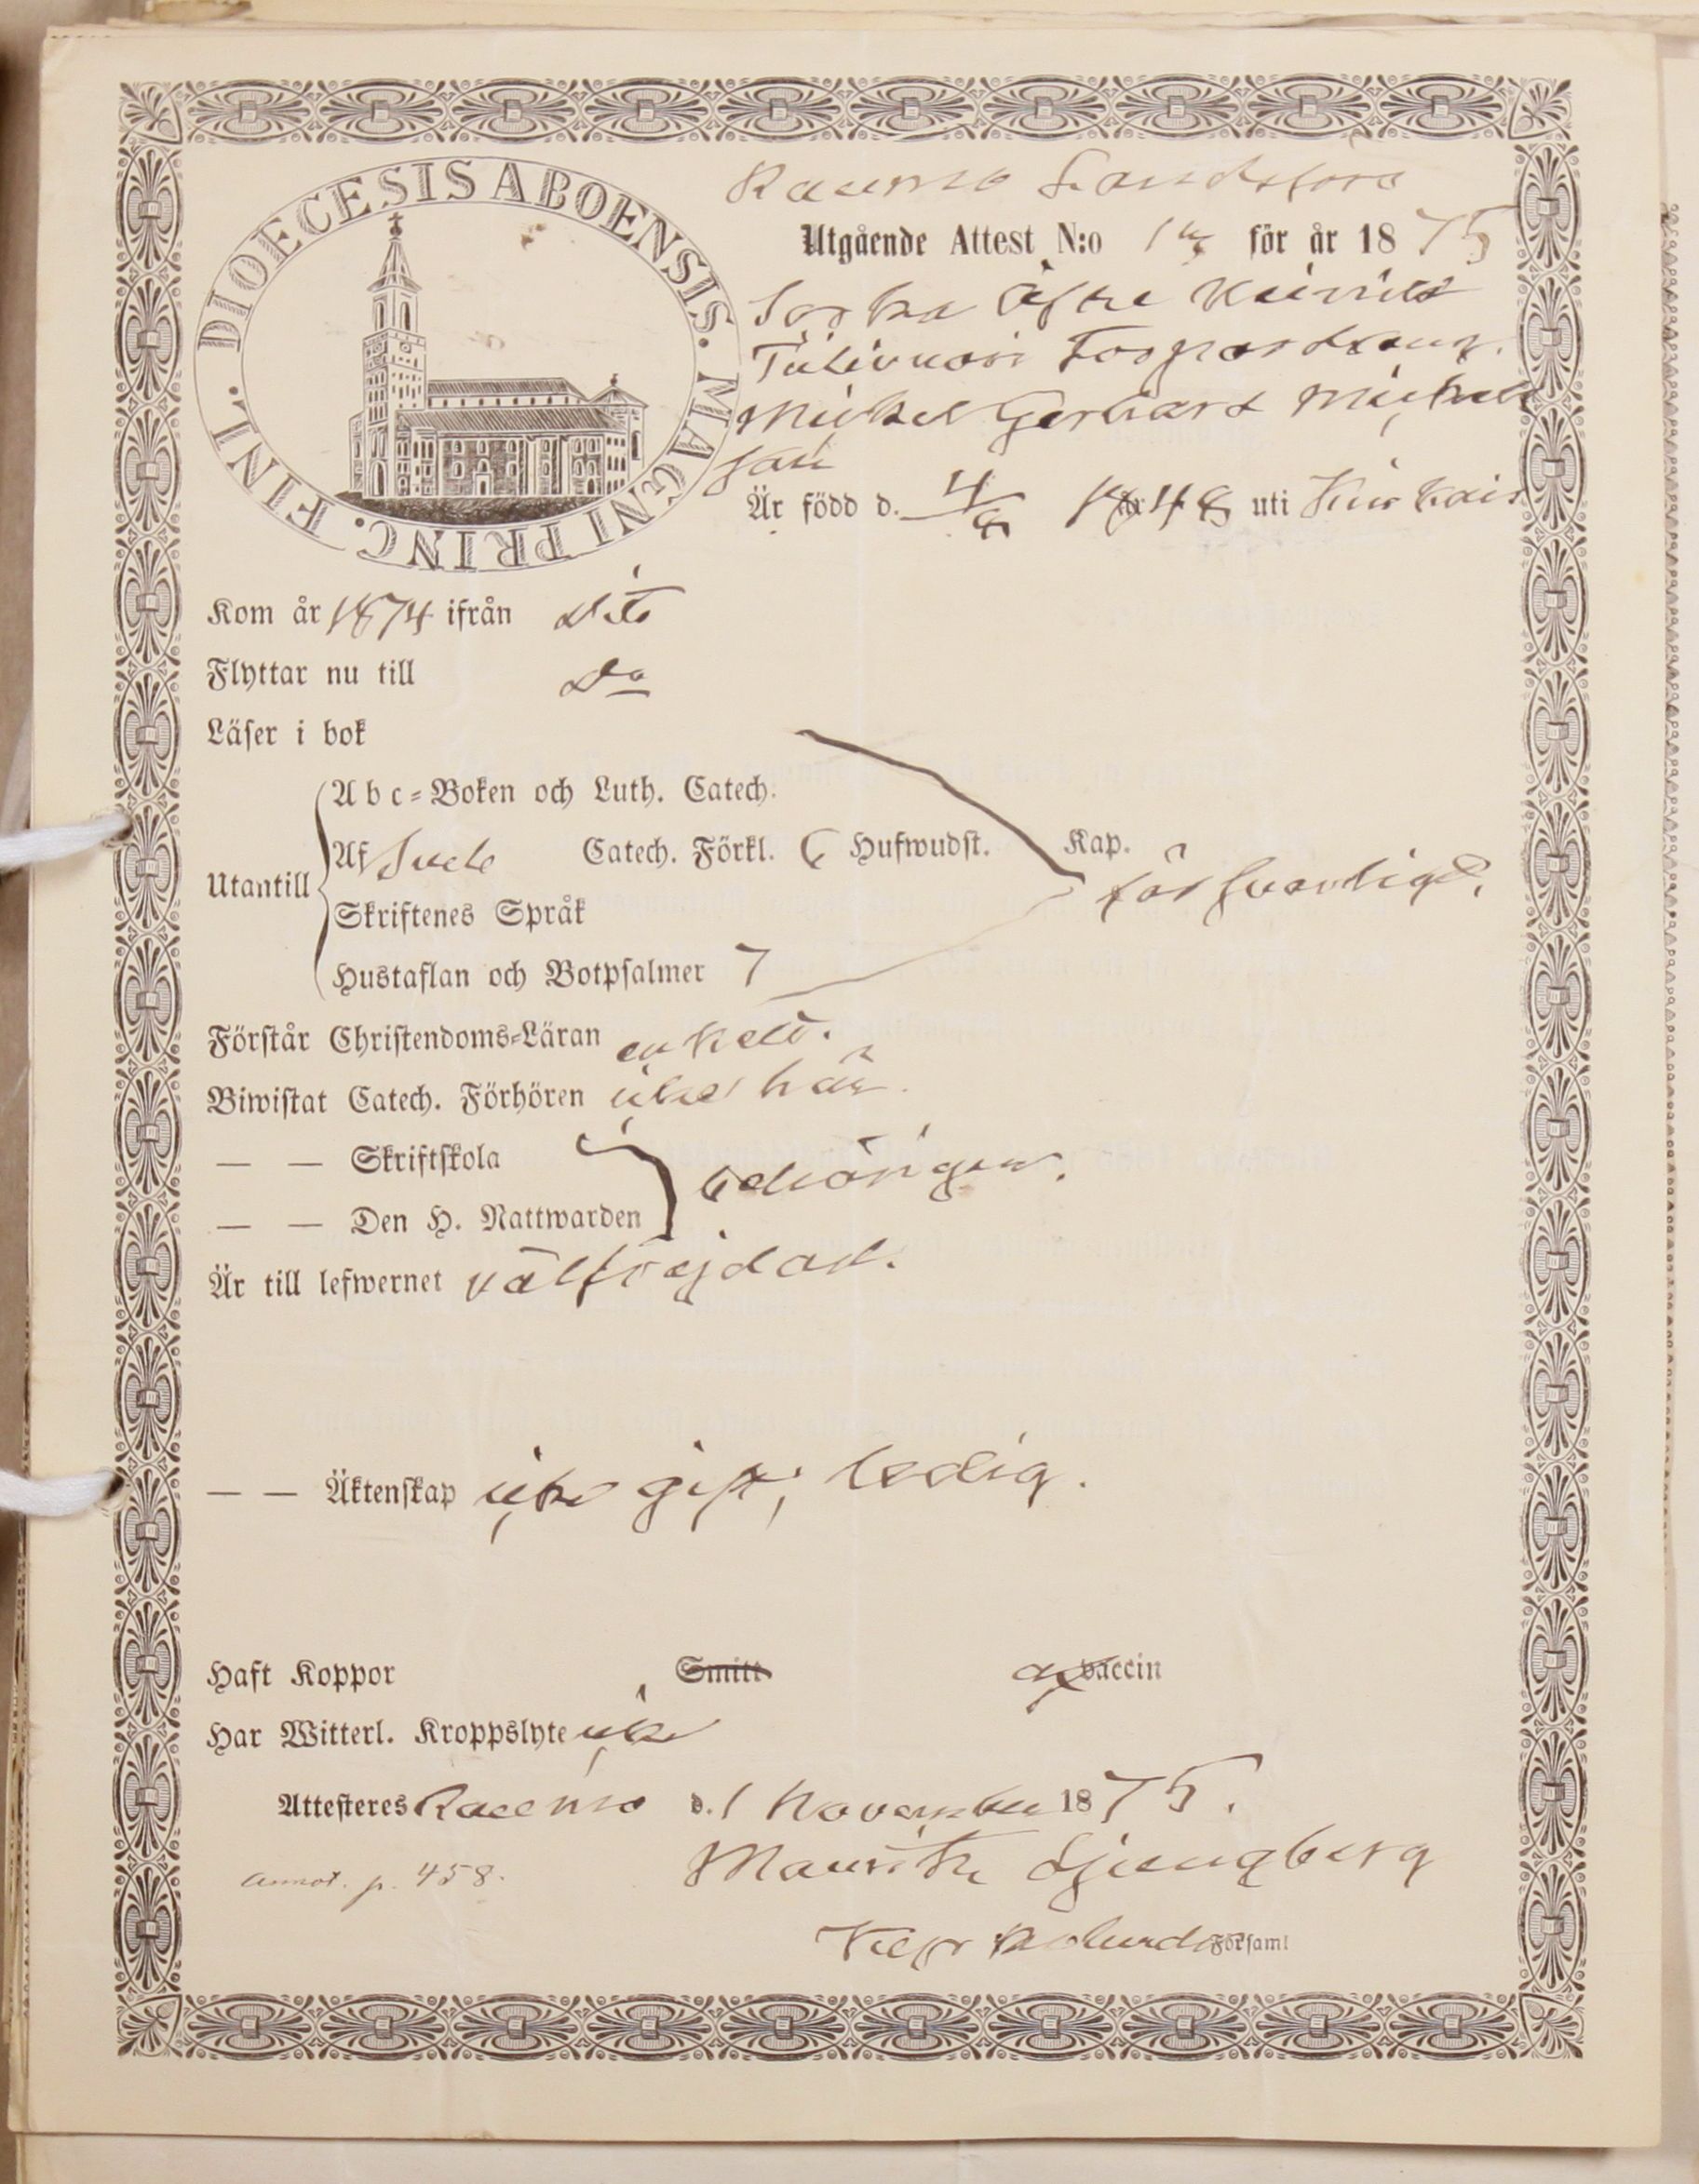 DIOECESIS ABOENSIS. MAGNI PRINC. FINL.
Raumo Landsförs
Utgående Attest N:o för år 1875
Torfva
Mickel Gerhard Mickels
son
Är född d. 4/8 1848 uti Kiukais
Kom år 1874 ifrån Dito
Flyttar nu till Do
Läser i bok
Abc-Boken och Luth. Catech.
Utantill
Af Sveb. Catech. Förkl. 6 Hufwudst. Kap.
försvarligt.
Skriftenes Språk
Hustaflan och Botpsalmer 7
Förstår Christendoms-Läran enkelt.
Biwistat Catech. Förhören icke här.
— — Skriftskola
behörigen.
— — Den H. Nattwarden
Är till lefwernet välfrejdad.
— — Äktenskap icke gift, ledig.
Haft Koppor Smitt af vaccin
Har Witterl. Kroppslyte icke
Attesteres Raumo d. 1 November 1875.
Annot. p. 458. Mauritz Ljungberg
Församl